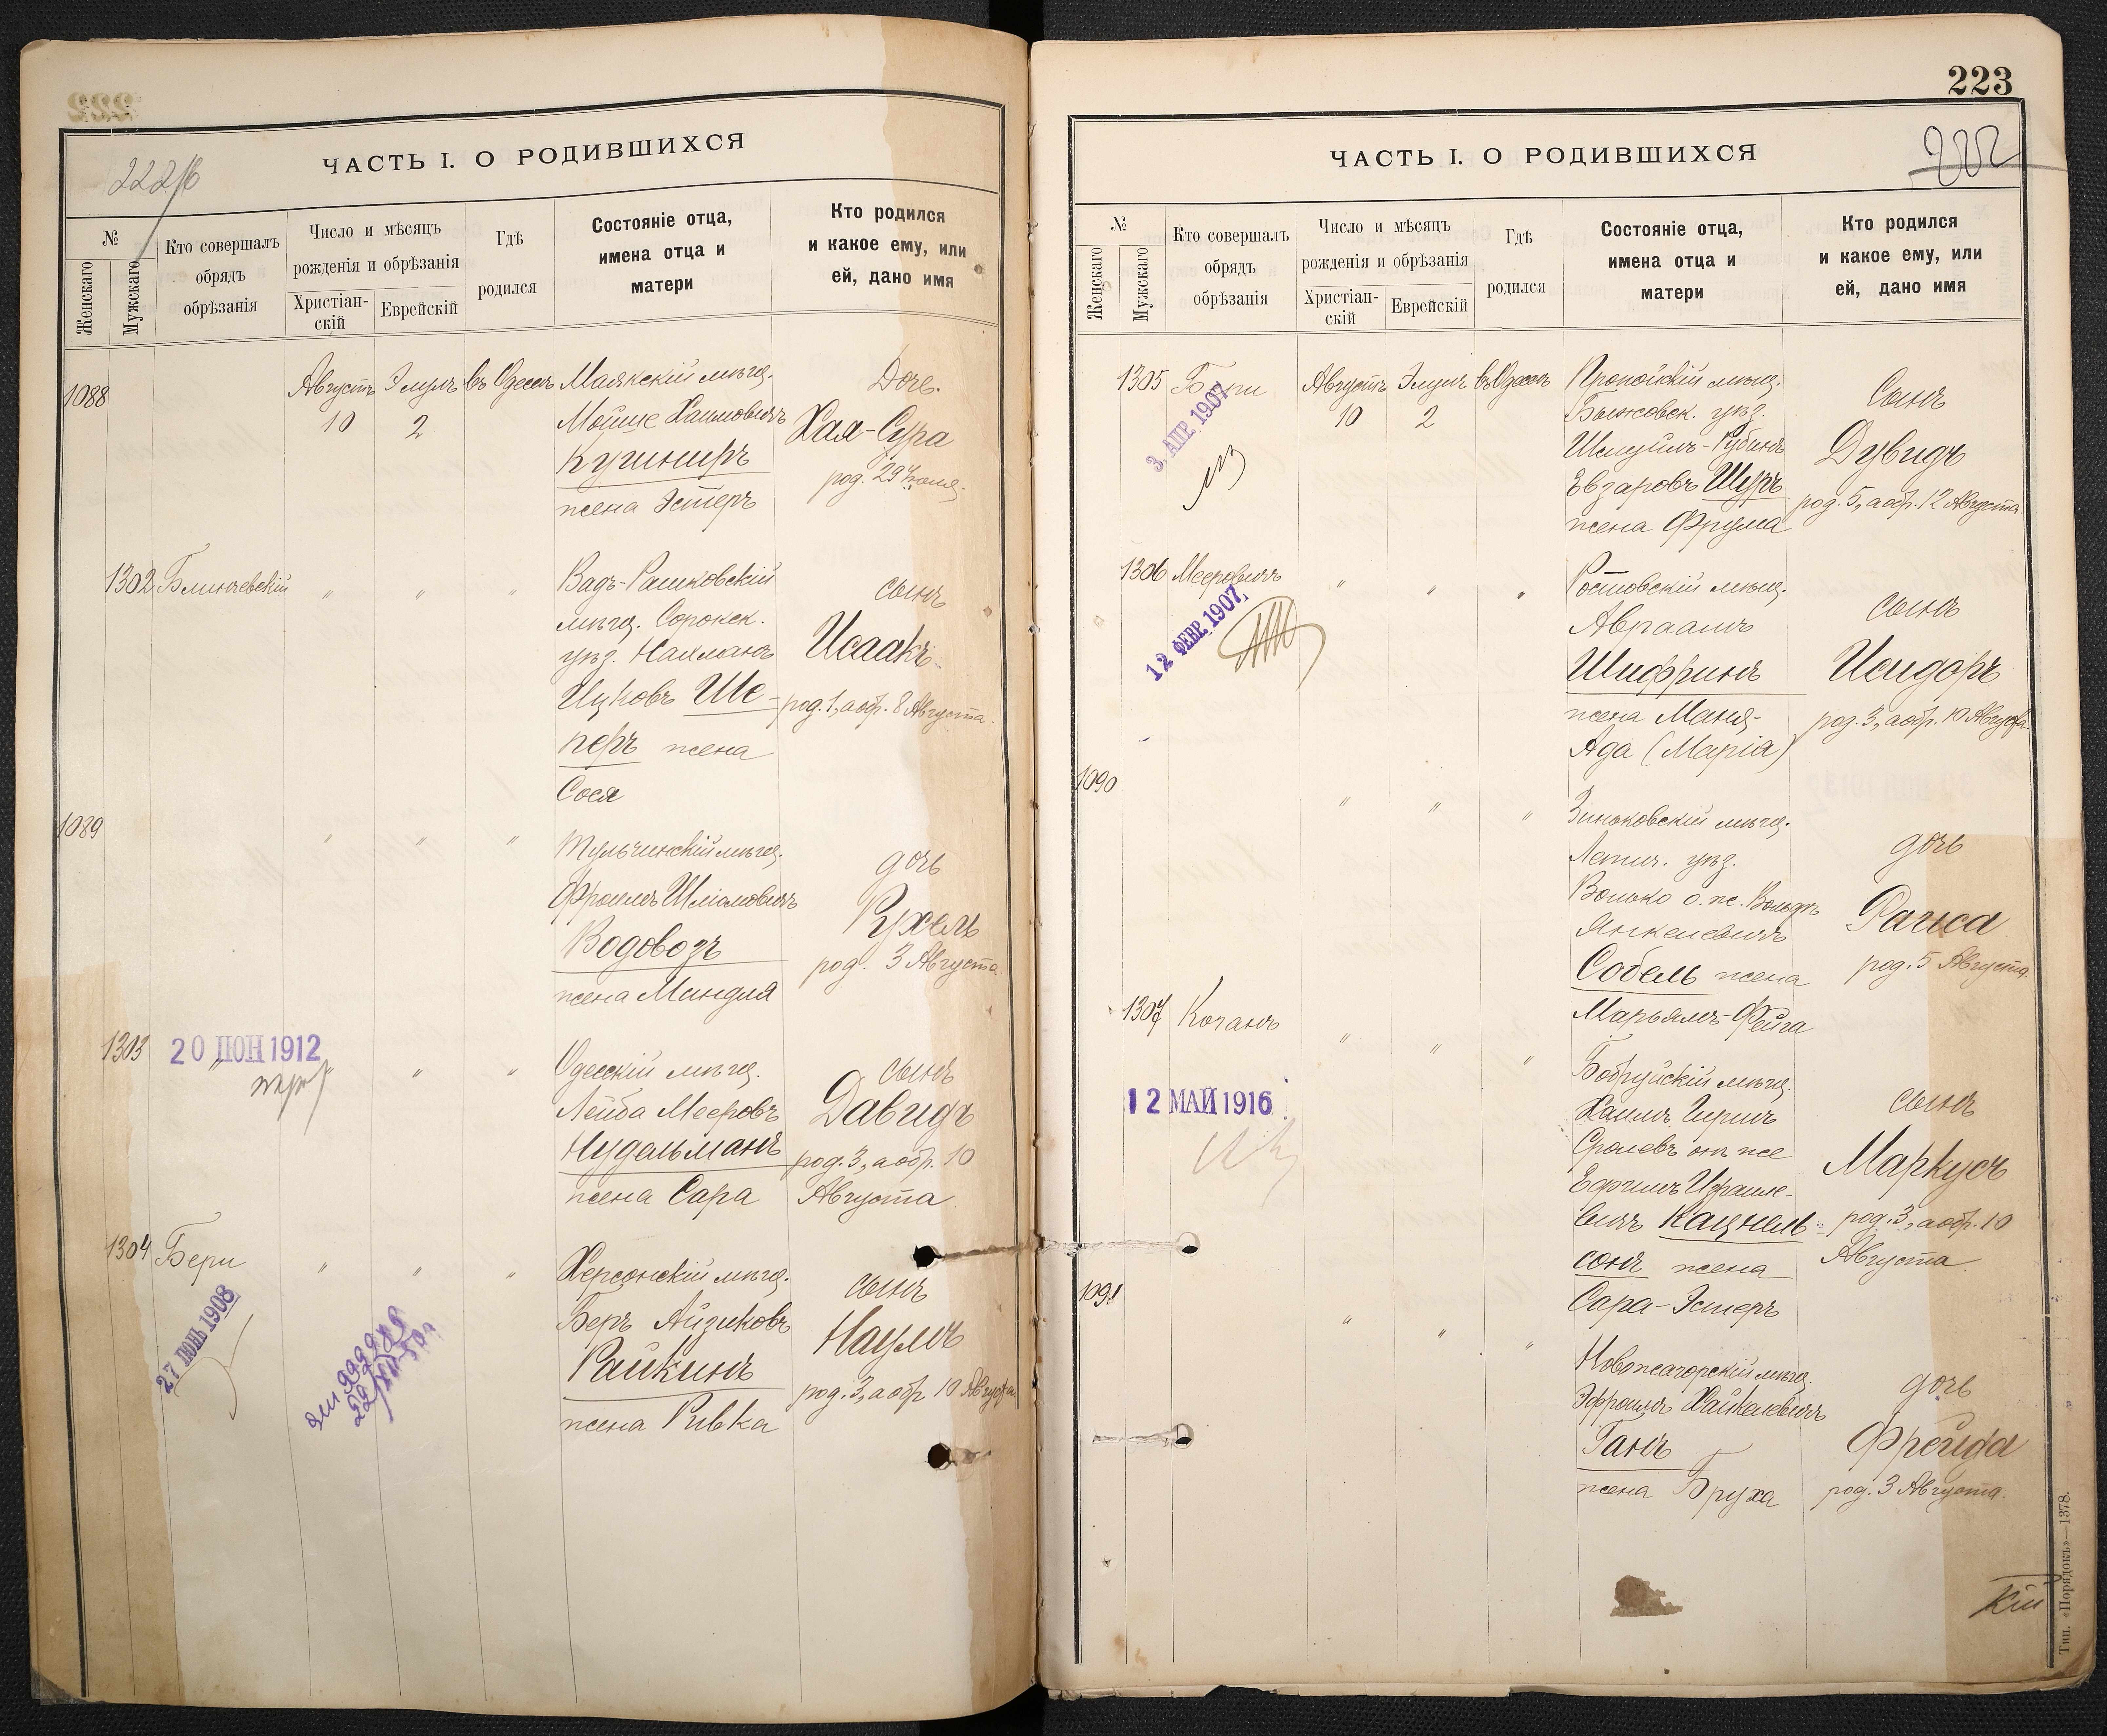 222/б
ЧАСТЬ I. О РОДИВШИХСЯ
№
Женскаго
Мужскаго
Кто совершалъ
обрядъ
обрѣзанія
Число и мѣсяцъ
рожденія и обрѣзанія
Христіан-
скій
Еврейскій
Гдѣ
родился
Состояніе отца,
имена отца и
матери
Кто родился
и какое ему, или
ей, дано имя
1088
Августъ
10
Элулъ
2
въ Одессѣ
Маякскій мѣщ.
Мойше Хаимовичъ
Кушниръ
жена Эстеръ
Дочь.
Хая-Сура
род. 29 Іюля.
1302
Блинчевскій
" " "
Вадъ-Рашковскій
мѣщ. Сорокск.
уѣз. Нахманъ
Ицковъ Ше-
перъ жена
Сося
сынъ
Исаакъ
род. 1, а обр. 8 Августа.
1089
" " "
Тульчинскій мѣщ.
Фроимъ Шліомовичъ
Водовозъ
жена Миндля
дочь
Рухель
род. 3 Августа
1303
20 ІЮН 1912
" " "
Одесскій мѣщ.
Лейба Мееровъ
Нудельманъ
жена Сара
сынъ
Давидъ
род. 3, а обр. 10
Августа
1304
Бери
27 ІЮНЬ 1908
" " "
Херсонскій мѣщ.
Беръ Айзиковъ
Райкинъ
жена Ривка
сынъ
Наумъ
род. 3, а обр. 10 Августа
223
222
ЧАСТЬ I. О РОДИВШИХСЯ
№
Женскаго
Мужскаго
Кто совершалъ
обрядъ
обрѣзанія
Число и мѣсяцъ
рожденія и обрѣзанія
Христіан-
скій
Еврейскій
Гдѣ
родился
Состояніе отца,
имена отца и
матери
Кто родился
и какое ему, или
ей, дано имя
1305
Бери
3. АПР. 1907
Августъ
10
Элулъ
2
въ Одессѣ
Пропойскій мѣщ.
Быховск. уѣз.
Шмуилъ-Рубинъ
Евзаровъ Шуръ
жена Фрума
Сынъ
Дувидъ
род. 5, а обр. 12 Августа.
1306
Мееровичъ
12 ФЕВР. 1907
" " "
Ростовскій мѣщ.
Авраамъ
Шифринъ
жена Маня-
Ада (Марія)
сынъ
Исидоръ
род. 3, а обр. 10 Августа.
1090
" " "
Зиньковскій мѣщ.
Летич. уѣз.
Волько о. же. Вольфъ
Янкелевичъ
Собель жена
Марьямъ-Фейга
дочь
Раиса
род. 5 Августа.
1307
Коганъ
12 МАЙ 1916
" " "
Бобруйскій мѣщ.
Хаимъ Гиршъ
Сролевъ онъ же
Ефимъ Израиле-
вичъ Кацнель-
сонъ жена
Сара-Эстеръ
сынъ
Маркусъ
род. 3, а обр. 10
Августа
1091
" " "
Новожагорскій мѣщ.
Эфроимъ Хайкелевичъ
Ганъ
жена Бруха
дочь
Фрейда
род. 3 Августа.
кій
Тип. «Порядокъ»—1378.